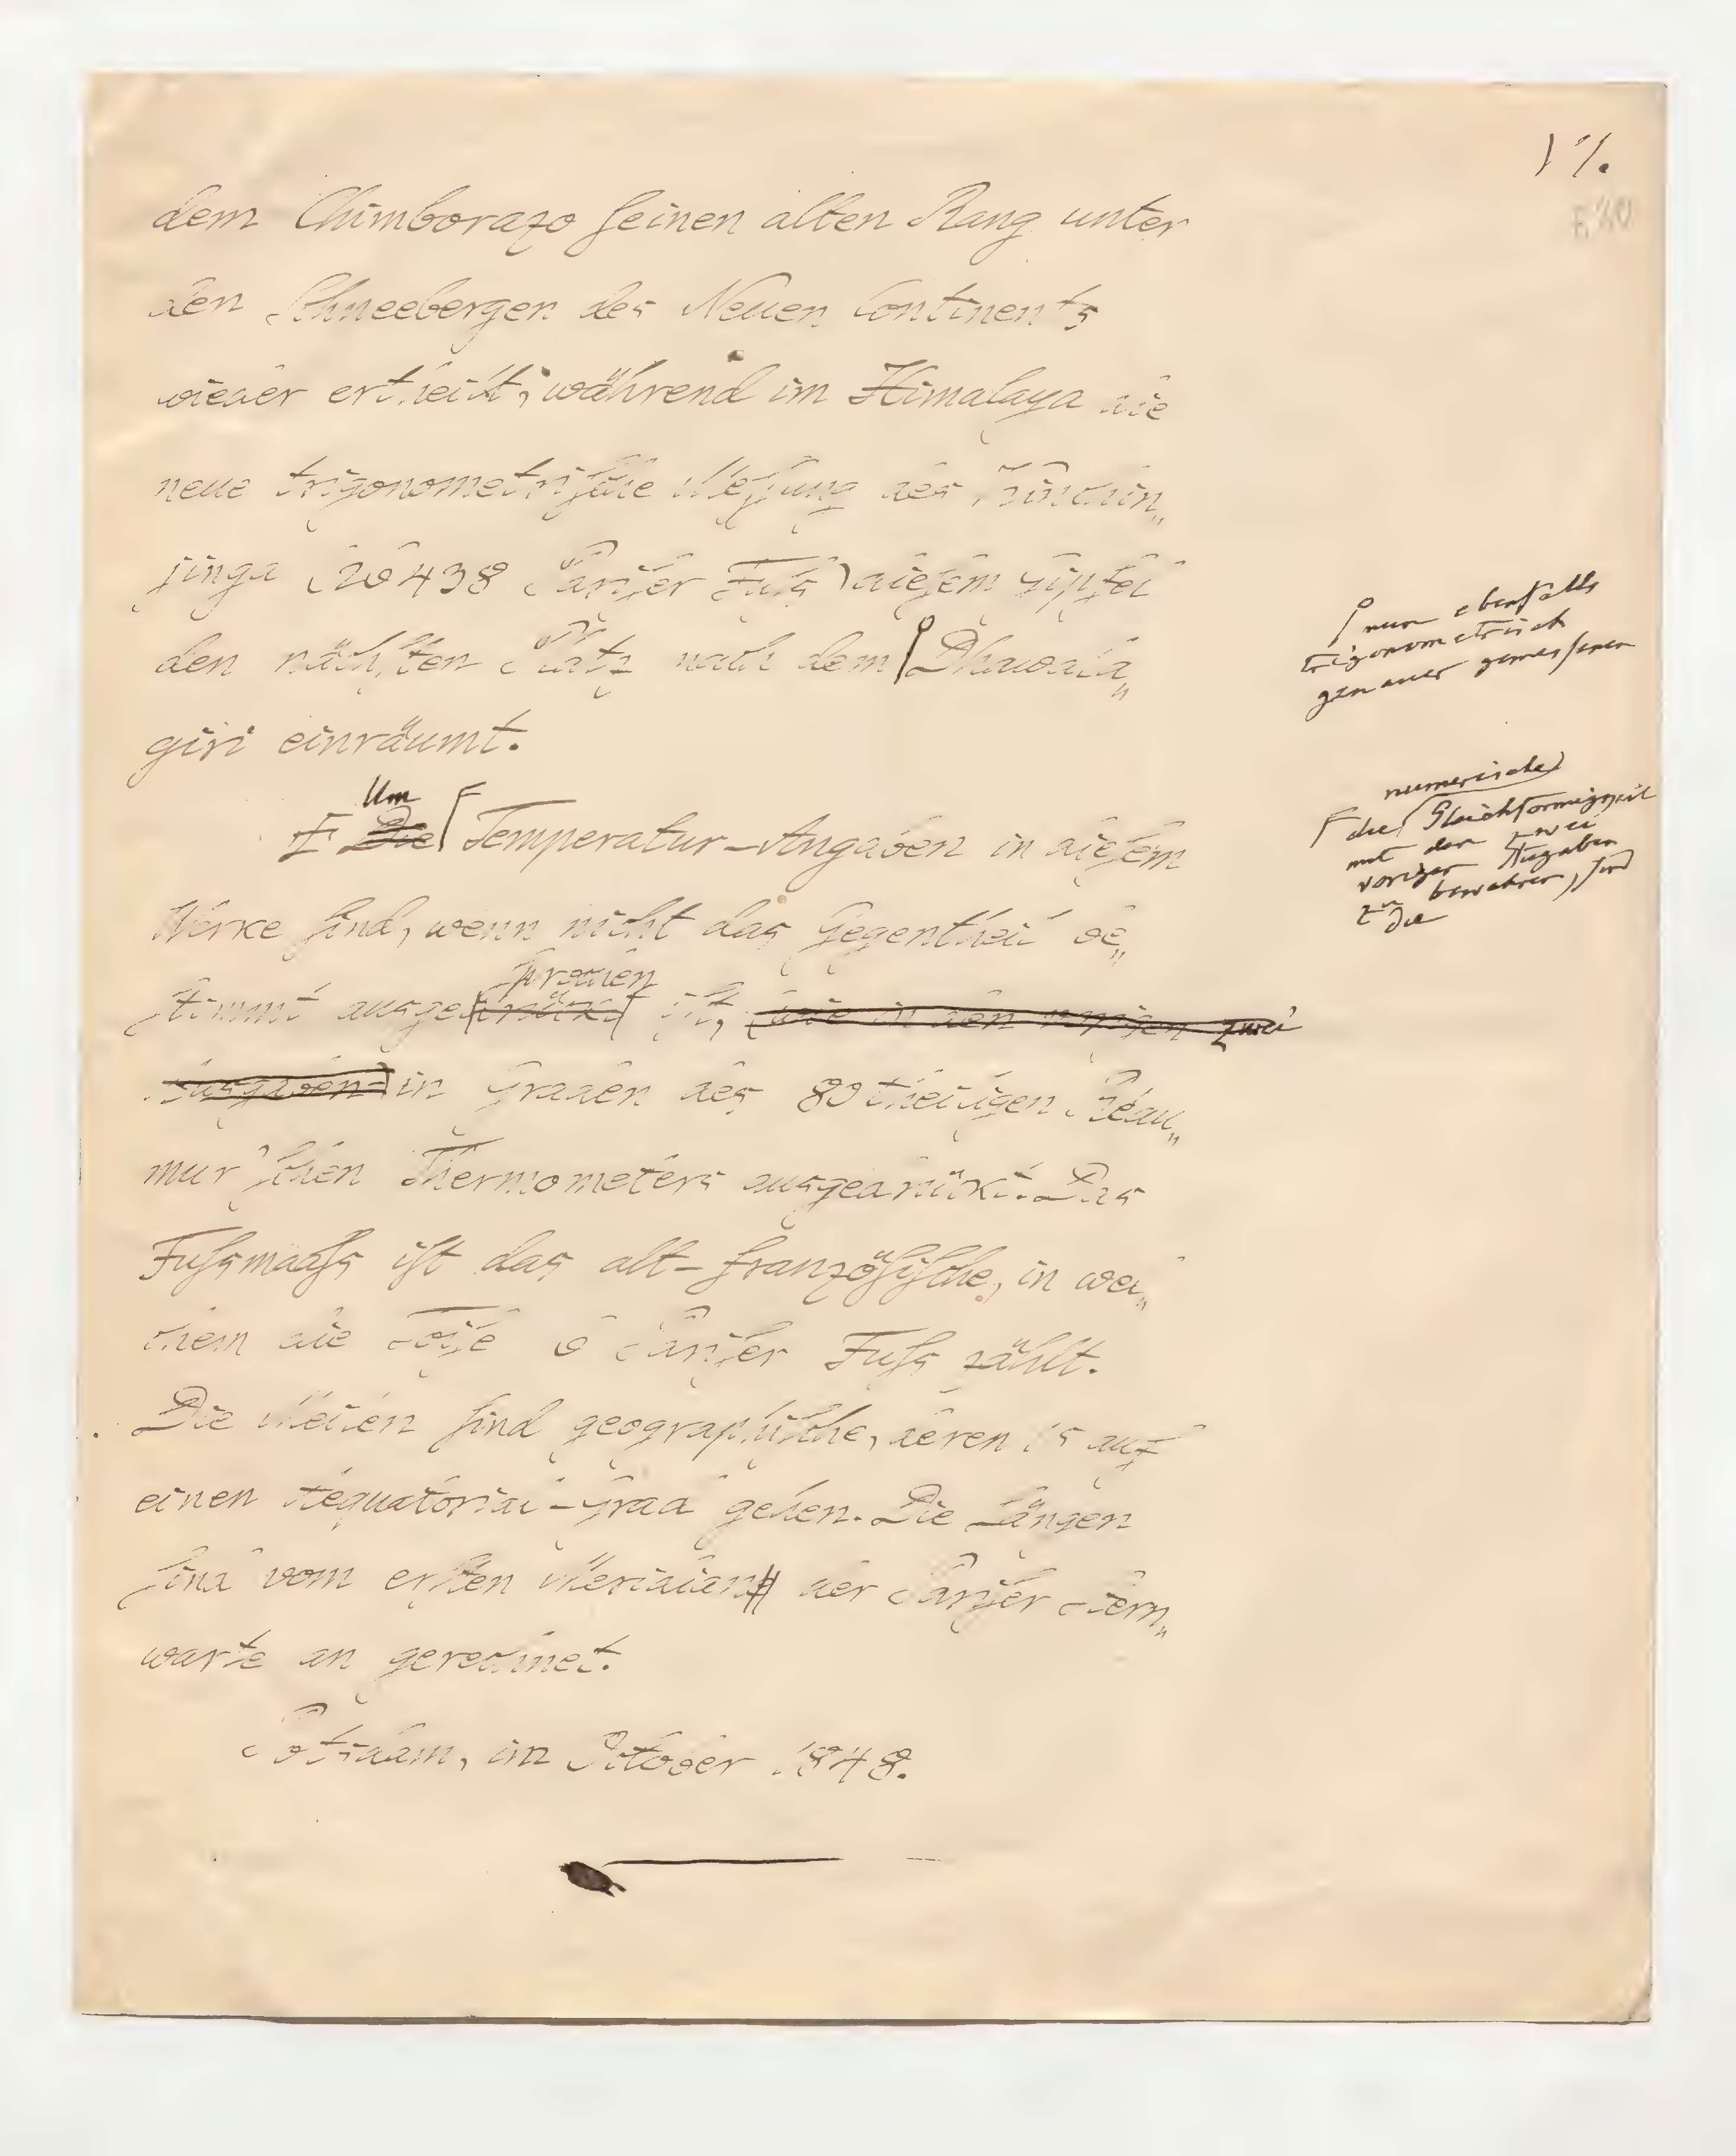 dem Chimborazo seinen alten Rang unter
den Schneebergen des Neuen Continents
wieder ertheilt; während im Himalaya die
neue trigonometrische Messung des Kinchin„
jinga (26438 Pariser Fuß) diesem Gipfel
den nächsten Platz nach dem Dhawala„
giri einräumt.
nun ebenfalls
trigonometrisch
genauer gemessenen
Um
Die Temperatur-Angaben in diesem
numerische
die Gleichförmigkeit
mit den zwei
vorigen Ausgaben
zu bewahren, sind
Die
Werke sind, wenn nicht das Gegentheil be„
sprochen
stimmt ausgedrückt ist, wie in den vorigen zwei
Ausgaben in Graden des 80theiligen Réau„
mur'schen Thermometers ausgedrückt. Das
Fußmaaß ist das alt-französische, in wel„
chem die Toise 6 Pariser Fuß zählt.
Die Meilen sind geographische, deren 15 auf
einen Aequatorial-Grad gehen. Die Längen
sind vom ersten Meridian der Pariser Stern„
warte an gerechnet.
Potsdam, im October 1848.